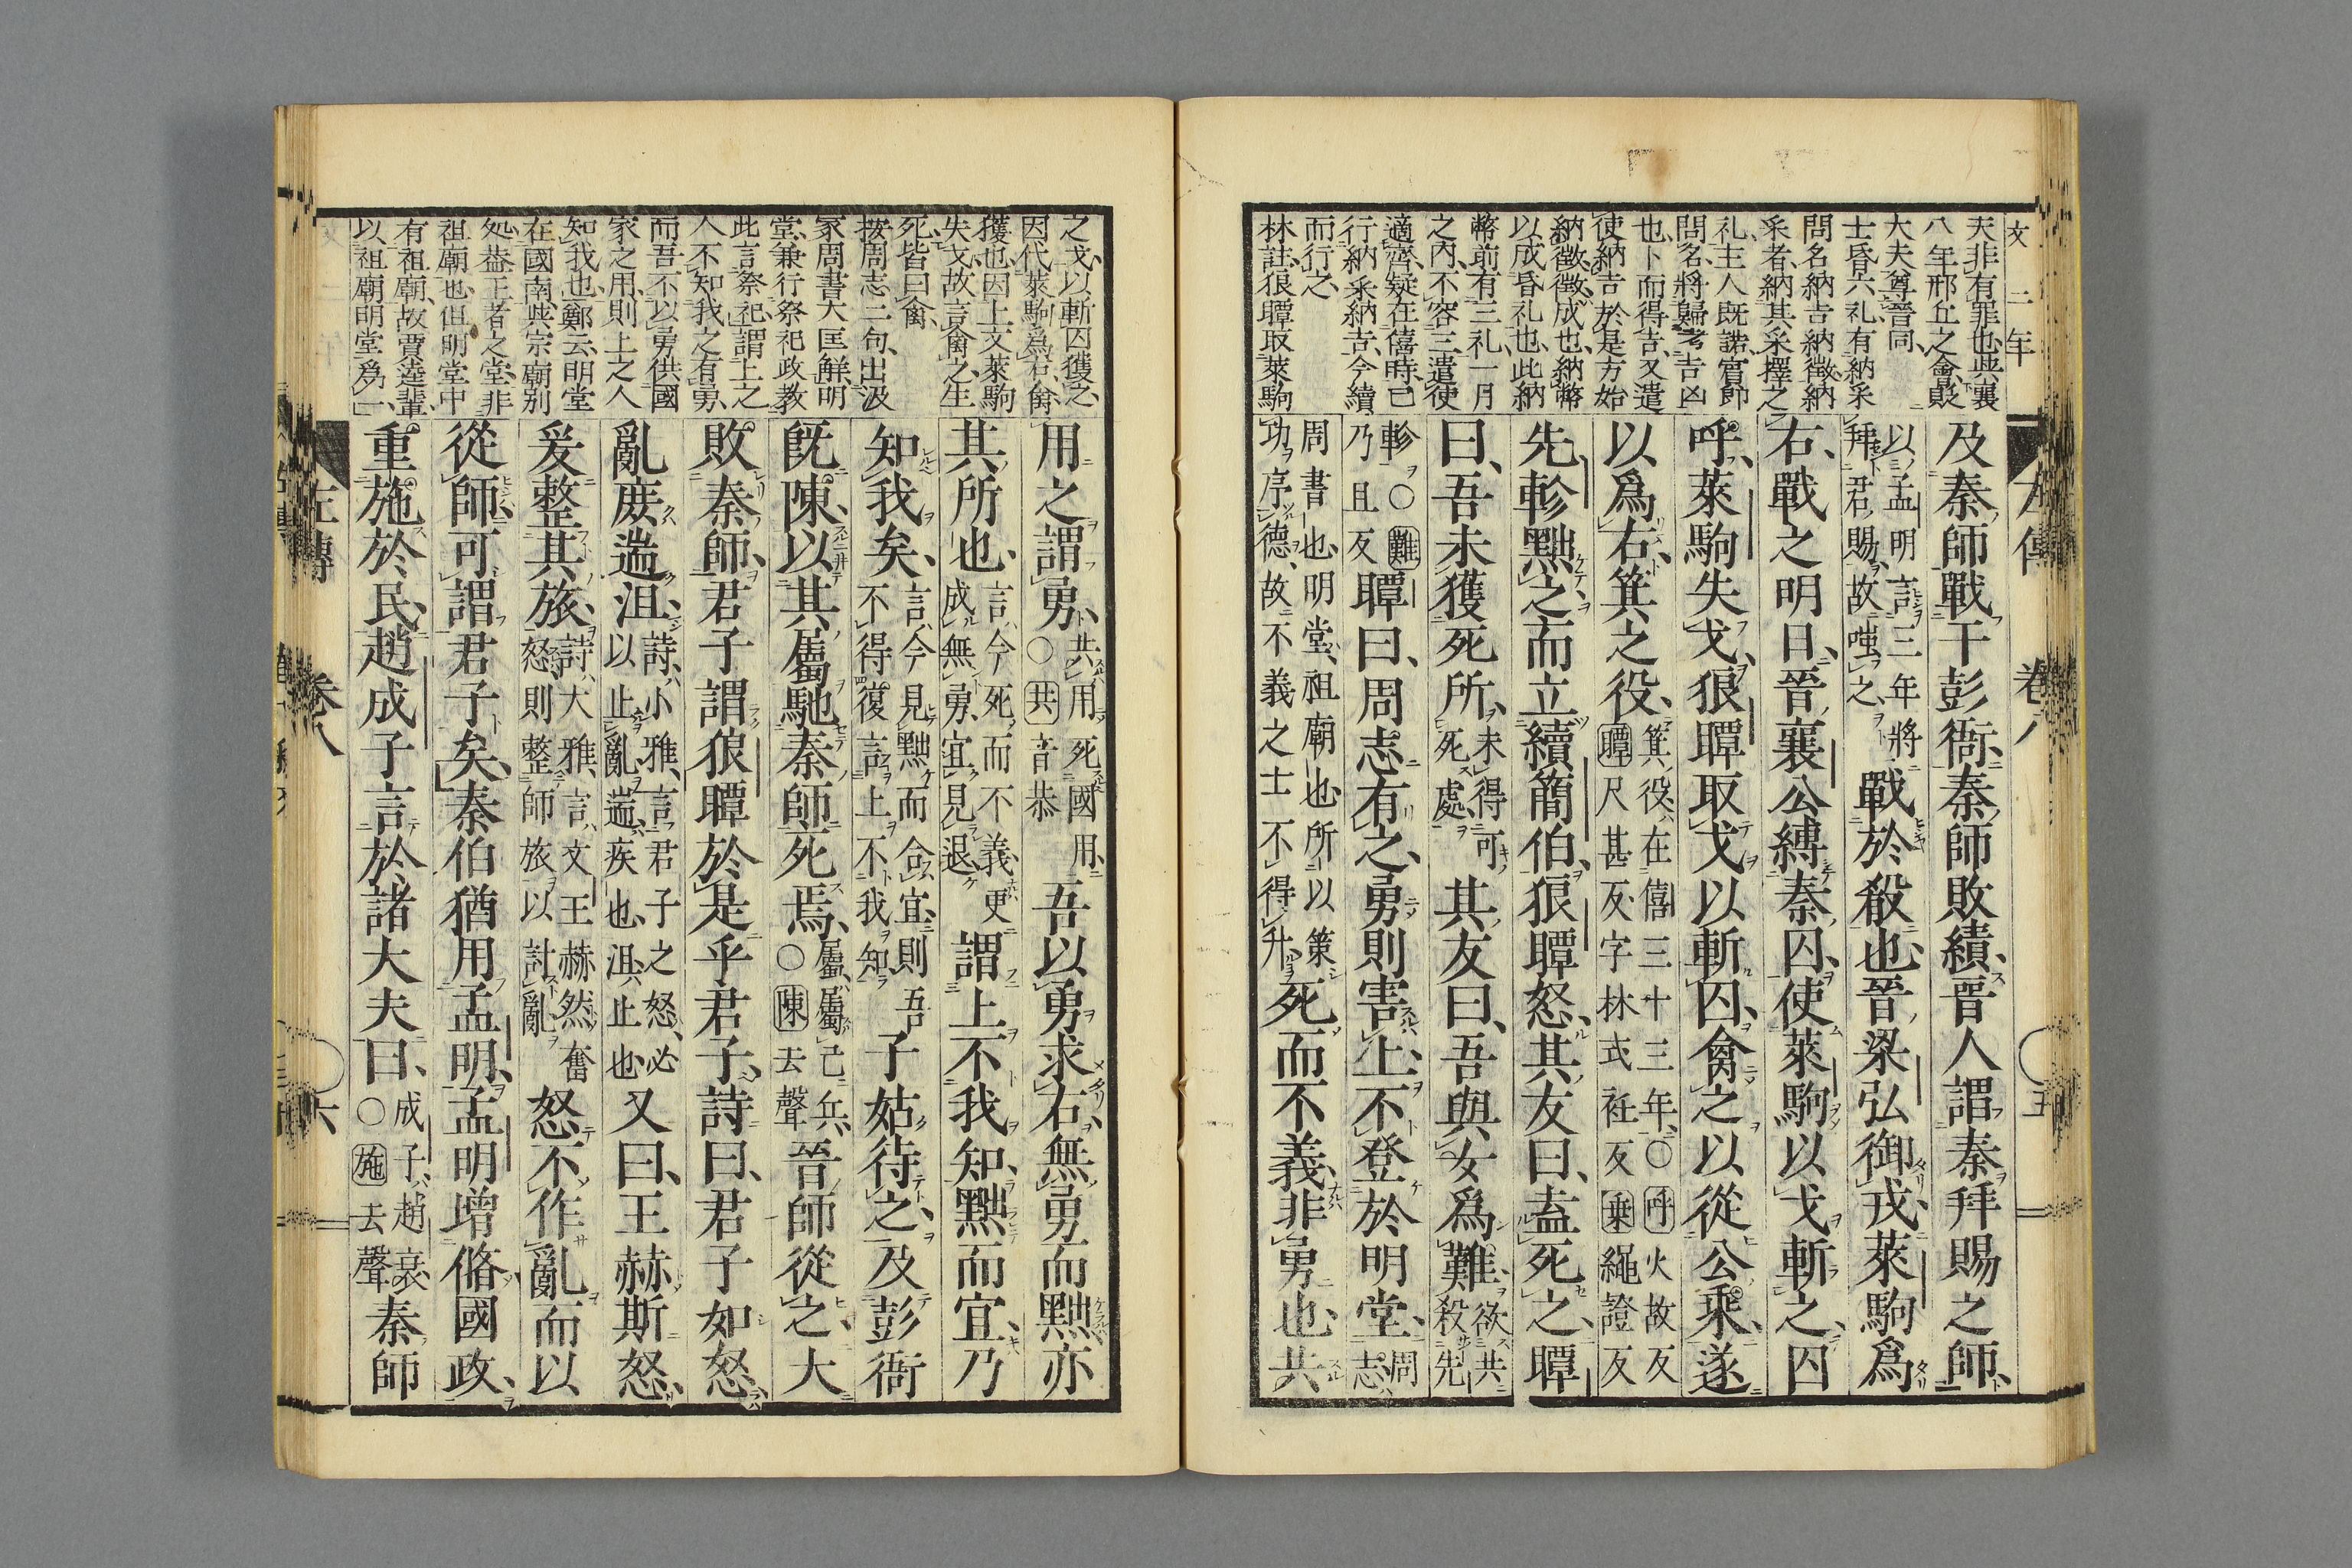 文二年
夫非有罪也與襄
八年邢丘之會貶
大夫尊晉同
士昏六礼有納采
問名納吉納徵納
采者納其采擇之
礼主人既諾賓即
問名將歸考吉凶
也卜而得吉又遣
使納吉於是方始
納徵徵成也納幣
以成昏礼也此納
幣前有三礼一月
之內不容三遣使
適齊疑在僖時已
行納采納吉今續
而行之
林註狼瞫取萊駒
左傳 卷八 五
及秦師戰于彭衙秦師敗績晉人謂秦拜賜之師
以孟明言三年將
拜君賜故嗤之
戰於殽也晉梁弘御戎萊駒爲
右戰之明日晉襄公縛秦囚使萊駒以戈斬之囚
呼萊駒失戈狼瞫取戈以斬囚禽之以從公乘遂
以爲右箕之役
箕役在僖三十三年○呼火故反
瞫尺甚反字林式衽反乗繩證反
先軫黜之而立續簡伯狼瞫怒其友曰盍死之瞫
曰吾未獲死所
未得可
死處
其友曰吾與女爲難
欲共
殺先
軫○難
乃旦反
瞫曰周志有之勇則害上不登於明堂
周
志
周書也明堂祖廟也所以策
功序德故不義之士不得升
死而不義非勇也共
之戈以斬囚獲之
因代萊駒爲右禽
獲也因上文萊駒
失戈故言禽之生
死皆曰禽
按周志二句出汲
冢周書大匡解明
堂兼行祭祀政教
此言祭祀謂上之
人不知我之有勇
而吾不以勇供國
家之用則上之人
知我也鄭云明堂
在國南與宗廟別
処蓋王者之堂非
祖廟也但明堂中
有祖廟故賈逵輩
以祖廟明堂爲一
用之謂勇
共用死國用
○共音恭
吾以勇求右無勇而黜亦
其所也
言今死而不義更
成無勇宜見退
謂上不我知黜而宜乃
知我矣
言今見黜而合宜則吾
不得復言上不我知
子姑待之及彭衙
既陳以其屬馳秦師死焉
屬屬己兵
○陳去聲
晉師從之大
敗秦師君子謂狼瞫於是乎君子詩曰君子如怒
亂庶遄沮
詩小雅言君子之怒必
以止亂遄疾也沮止也
又曰王赫斯怒
爰整其旅
詩大雅言文王赫然奮
怒則整師旅以討亂
怒不作亂而以
從師可謂君子矣秦伯猶用孟明孟明增脩國政
重施於民趙成子言於諸大夫曰
成子趙衰
○施去聲
秦師
左傳 卷八 六